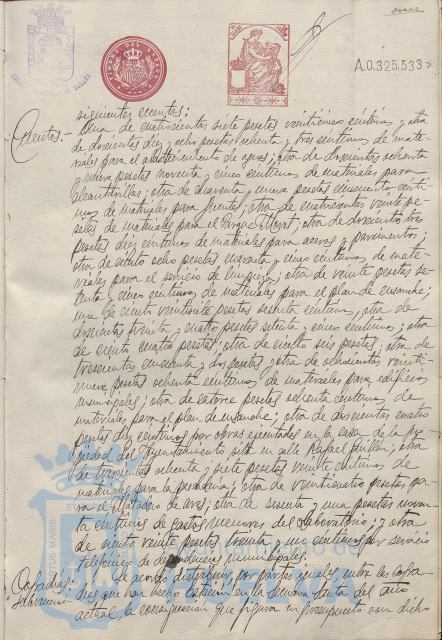 once
TIMBRE DEL ESTADO
A.0.325.533
siguientes cuentas:
Cuentas.- Una de cuatrocientas siete pesetas veintiún céntimos y otra
de doscientas diez y ocho pesetas ochenta y tres céntimos de mate-
riales para el abastecimiento de aguas; otra de doscientas ochenta
y nueve pesetas noventa y cinco céntimos de materiales para
alcantarillas; otra de cuarenta y nueve pesetas cincuenta cénti-
mos de materiales para fuentes; otra de cuatrocientas veinte pe-
setas de materiales para el Parque Moret; otra de doscientas tres
pesetas diez céntimos de materiales para aceras y pavimentos;
otra de ciento ocho pesetas cuarenta y cinco céntimos de mate-
riales para el servicio de limpieza; otra de veinte pesetas se-
tenta y cinco céntimos, de materiales para el plan de ensanche;
una de ciento veintisiete pesetas sesenta céntimos, otra de
doscientas treinta y cuatro pesetas setenta y cinco céntimos; otra
de ciento cuatro pesetas; otra de ciento seis pesetas; otra de
trescientas cincuenta y dos pesetas y otra de ochocientas veinti-
nueve pesetas ochenta céntimos de materiales para edificios
municipales; otra de catorce pesetas ochenta céntimos, de
materiales para el plan de ensanche; otra de doscientas cuatro
pesetas diez céntimos por obras ejecutadas en la casa de la pro-
piedad del Ayuntamiento sita en calle Rafael Guillén; otra
de trescientas ochenta y siete pesetas veinte céntimos de
materiales para la pescadería; otra de veinticuatro pesetas pa-
ra el Matadero de aves; otra de sesenta y una pesetas noven-
ta céntimos de gastos menores del Laboratorio; y otra
de ciento veinte pesetas treinta y un céntimos por servicio
telefónico de dependencias municipales.
Cofradías Se acordó distribuir, por partes iguales, entre las cofra-
días que han hecho estación en la Semana Santa del año
actual, la consignación que figura en presupuesto con dicho